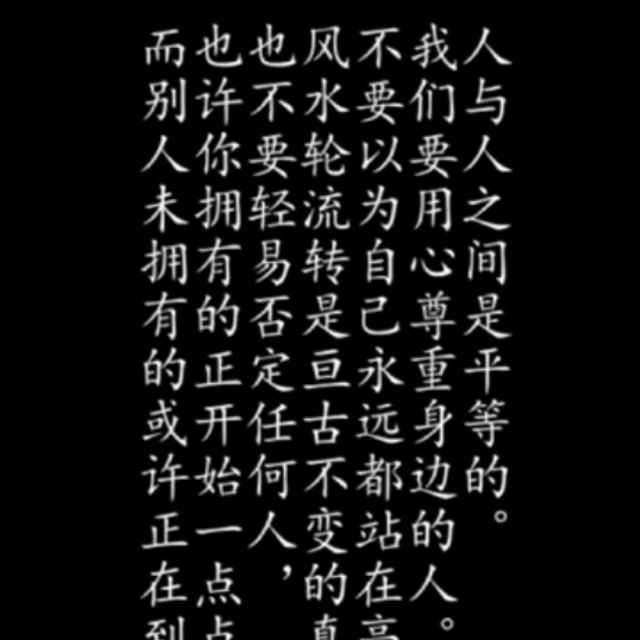 人与人之间是平等的。
我们要用心尊重身边的人。
不要以为自己永远都站在高
风水轮流转是亘古不变的真
也不要轻易否定任何人，
也许你拥有的正开始一点点
而别人未拥有的或许正在到